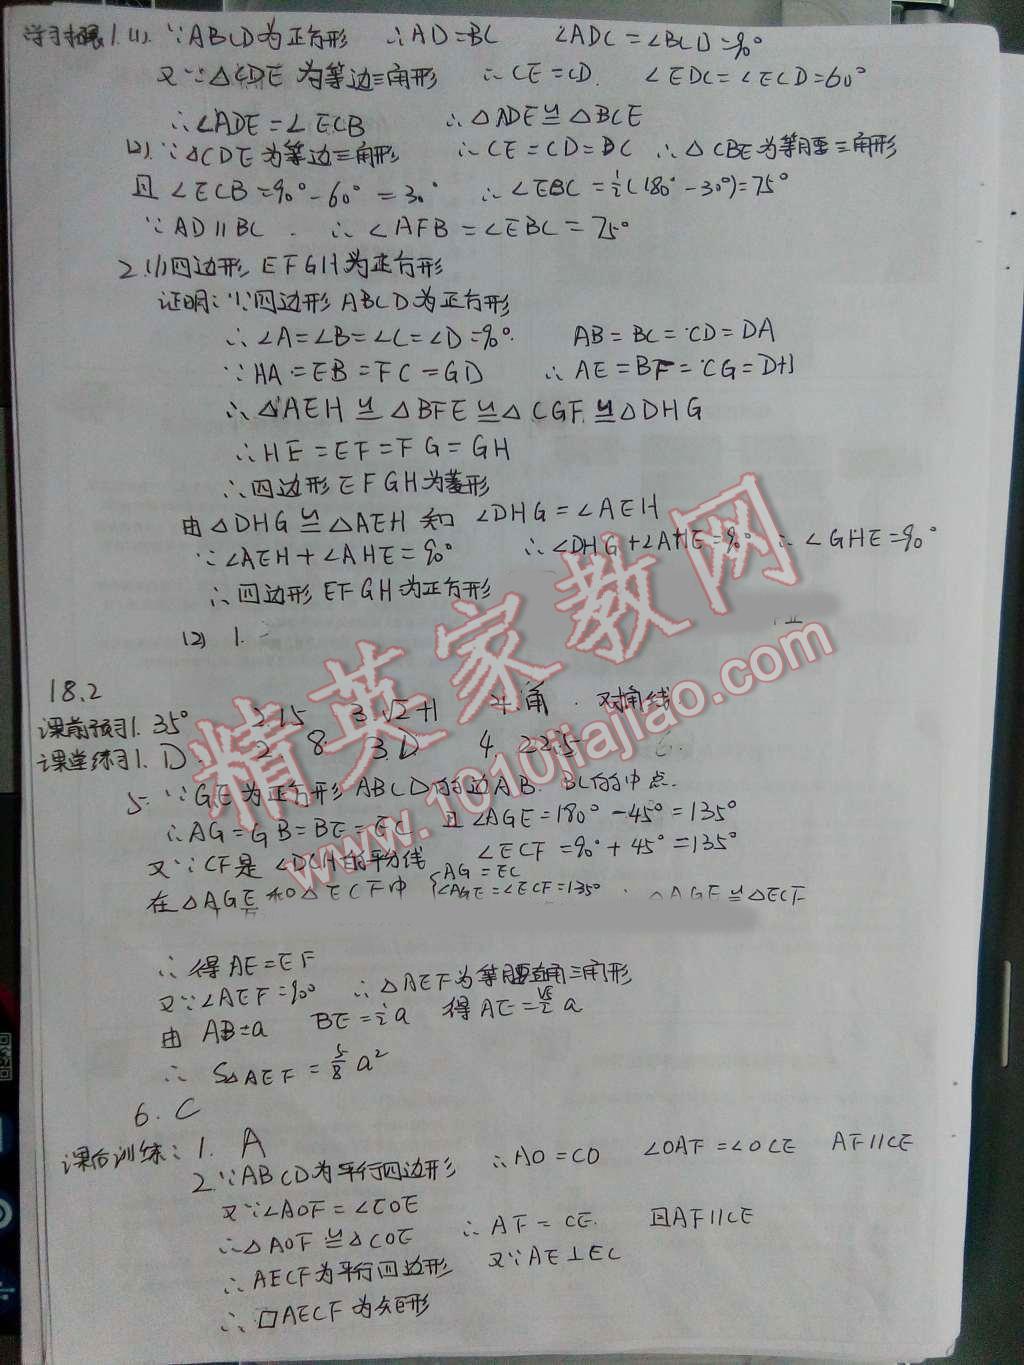 学习拓展 1.(1). ∵ABCD为正方形 ∴AD=BC ∠ADC=∠BCD=90°
又∵△CDE 为等边三角形 ∴CE=CD. ∠EDC=∠ECD=60°
∴∠ADE=∠ECB ∴△ADE≌△BCE
(2). ∵△CDE为等边三角形 ∴CE=CD=BC ∴△CBE为等腰三角形
且∠ECB=90°-60°=30° ∴∠EBC=½(180°-30°)=75°
∵AD∥BC. ∴∠AFB=∠EBC=75°
2.(1)四边形 EFGH为正方形
证明:∵四边形 ABCD为正方形
∴∠A=∠B=∠C=∠D=90°. AB=BC=CD=DA
∵HA=EB=FC=GD ∴AE=BF=CG=DH
∴△AEH≌△BFE≌△CGF≌△DHG
∴HE=EF=FG=GH
∴四边形EFGH为菱形
由△DHG≌△AEH 知 ∠DHG=∠AEH
∵∠AEH+∠AHE=90° ∴∠DHG+∠AHE=90° ∴∠GHE=90°
∴四边形EFGH为正方形
(2) 1.
18.2
课前预习1. 35° 2.15 3.√2+1 4.角. 对角线
课堂练习1. D. 2. 8. 3.D 4. 22.5
5. ∵GE为正方形ABCD的边AB. BC的中点.
∴AG=GB=BE=EC 且∠AGE=180°-45°=135°
又∵CF是∠DCH的平分线 ∠ECF=90°+45°=135°
在△AGE和△ECF中 {AG=EC ∠AGE=∠ECF=135° △AGE≌△ECF
∴得AE=EF
又∵∠AEF=90° ∴△AEF为等腰直角三角形
由 AB=a BE=½a 得AE=√5/2 a
∴ S△AEF=5/8 a²
6. C
课后训练: 1. A
2.∵ABCD为平行四边形 ∴AO=CO ∠OAF=∠OCE AF∥CE
又∵∠AOF=∠COE
∴△AOF≌△COE ∴AF=CE. 且AF∥CE
∴AECF为平行四边形 又∵AE⊥EC
∴▱AECF为矩形
精英家教网
www.1010jiajiao.com